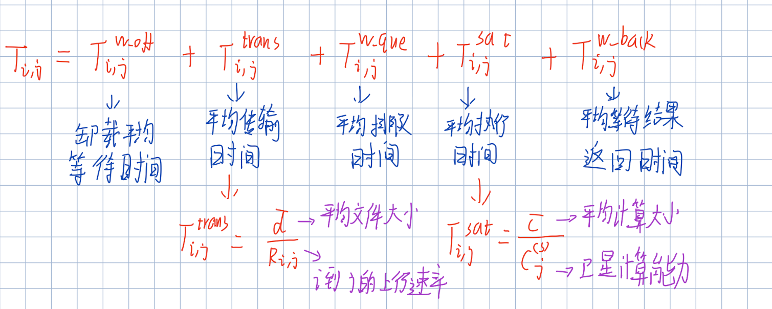 T_{i,j} = T_{i,j}^{w-off} + T_{i,j}^{trans} + T_{i,j}^{w-que} + T_{i,j}^{sat} + T_{i,j}^{w-back}
↓ ↓ ↓ ↓ ↓
卸载平均等待时间
平均传输时间
平均排队时间
平均执行时间
平均等待结果返回时间
↓ ↓
T_{i,j}^{trans} = \frac{d}{R_{i,j}}
→ 平均文件大小
→ i到j的上行速率
T_{i,j}^{sat} = \frac{\overline{c}}{C_j^{(s)}}
→ 平均计算大小
→ 卫星计算能力